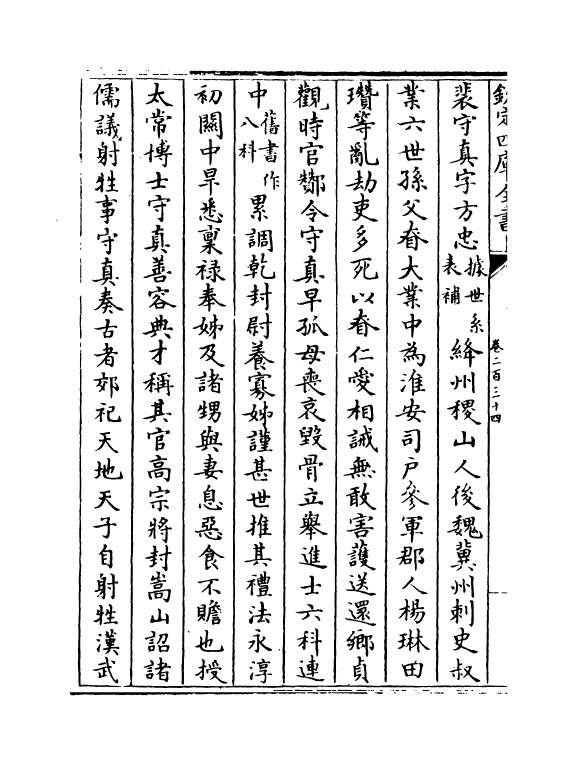 欽定四庫全書
卷二百三十四
裴守真字方忠據世系表補絳州稷山人後魏冀州刺史叔
業六世孫父眘大業中為淮安司户參軍郡人楊琳田
瓚等亂劫吏多死以眘仁愛相誡無敢害護送還鄉貞
觀時官酇令守真早孤母喪哀毀骨立舉進士六科連
中舊書作八科累調乾封尉養寡姊謹甚世推其禮法永淳
初關中旱悉稟禄奉姊及諸甥與妻息惡食不贍也授
太常博士守真善容典才稱其官高宗將封嵩山詔諸
儒議射牲事守真奏古者郊祀天地天子自射牲漢武